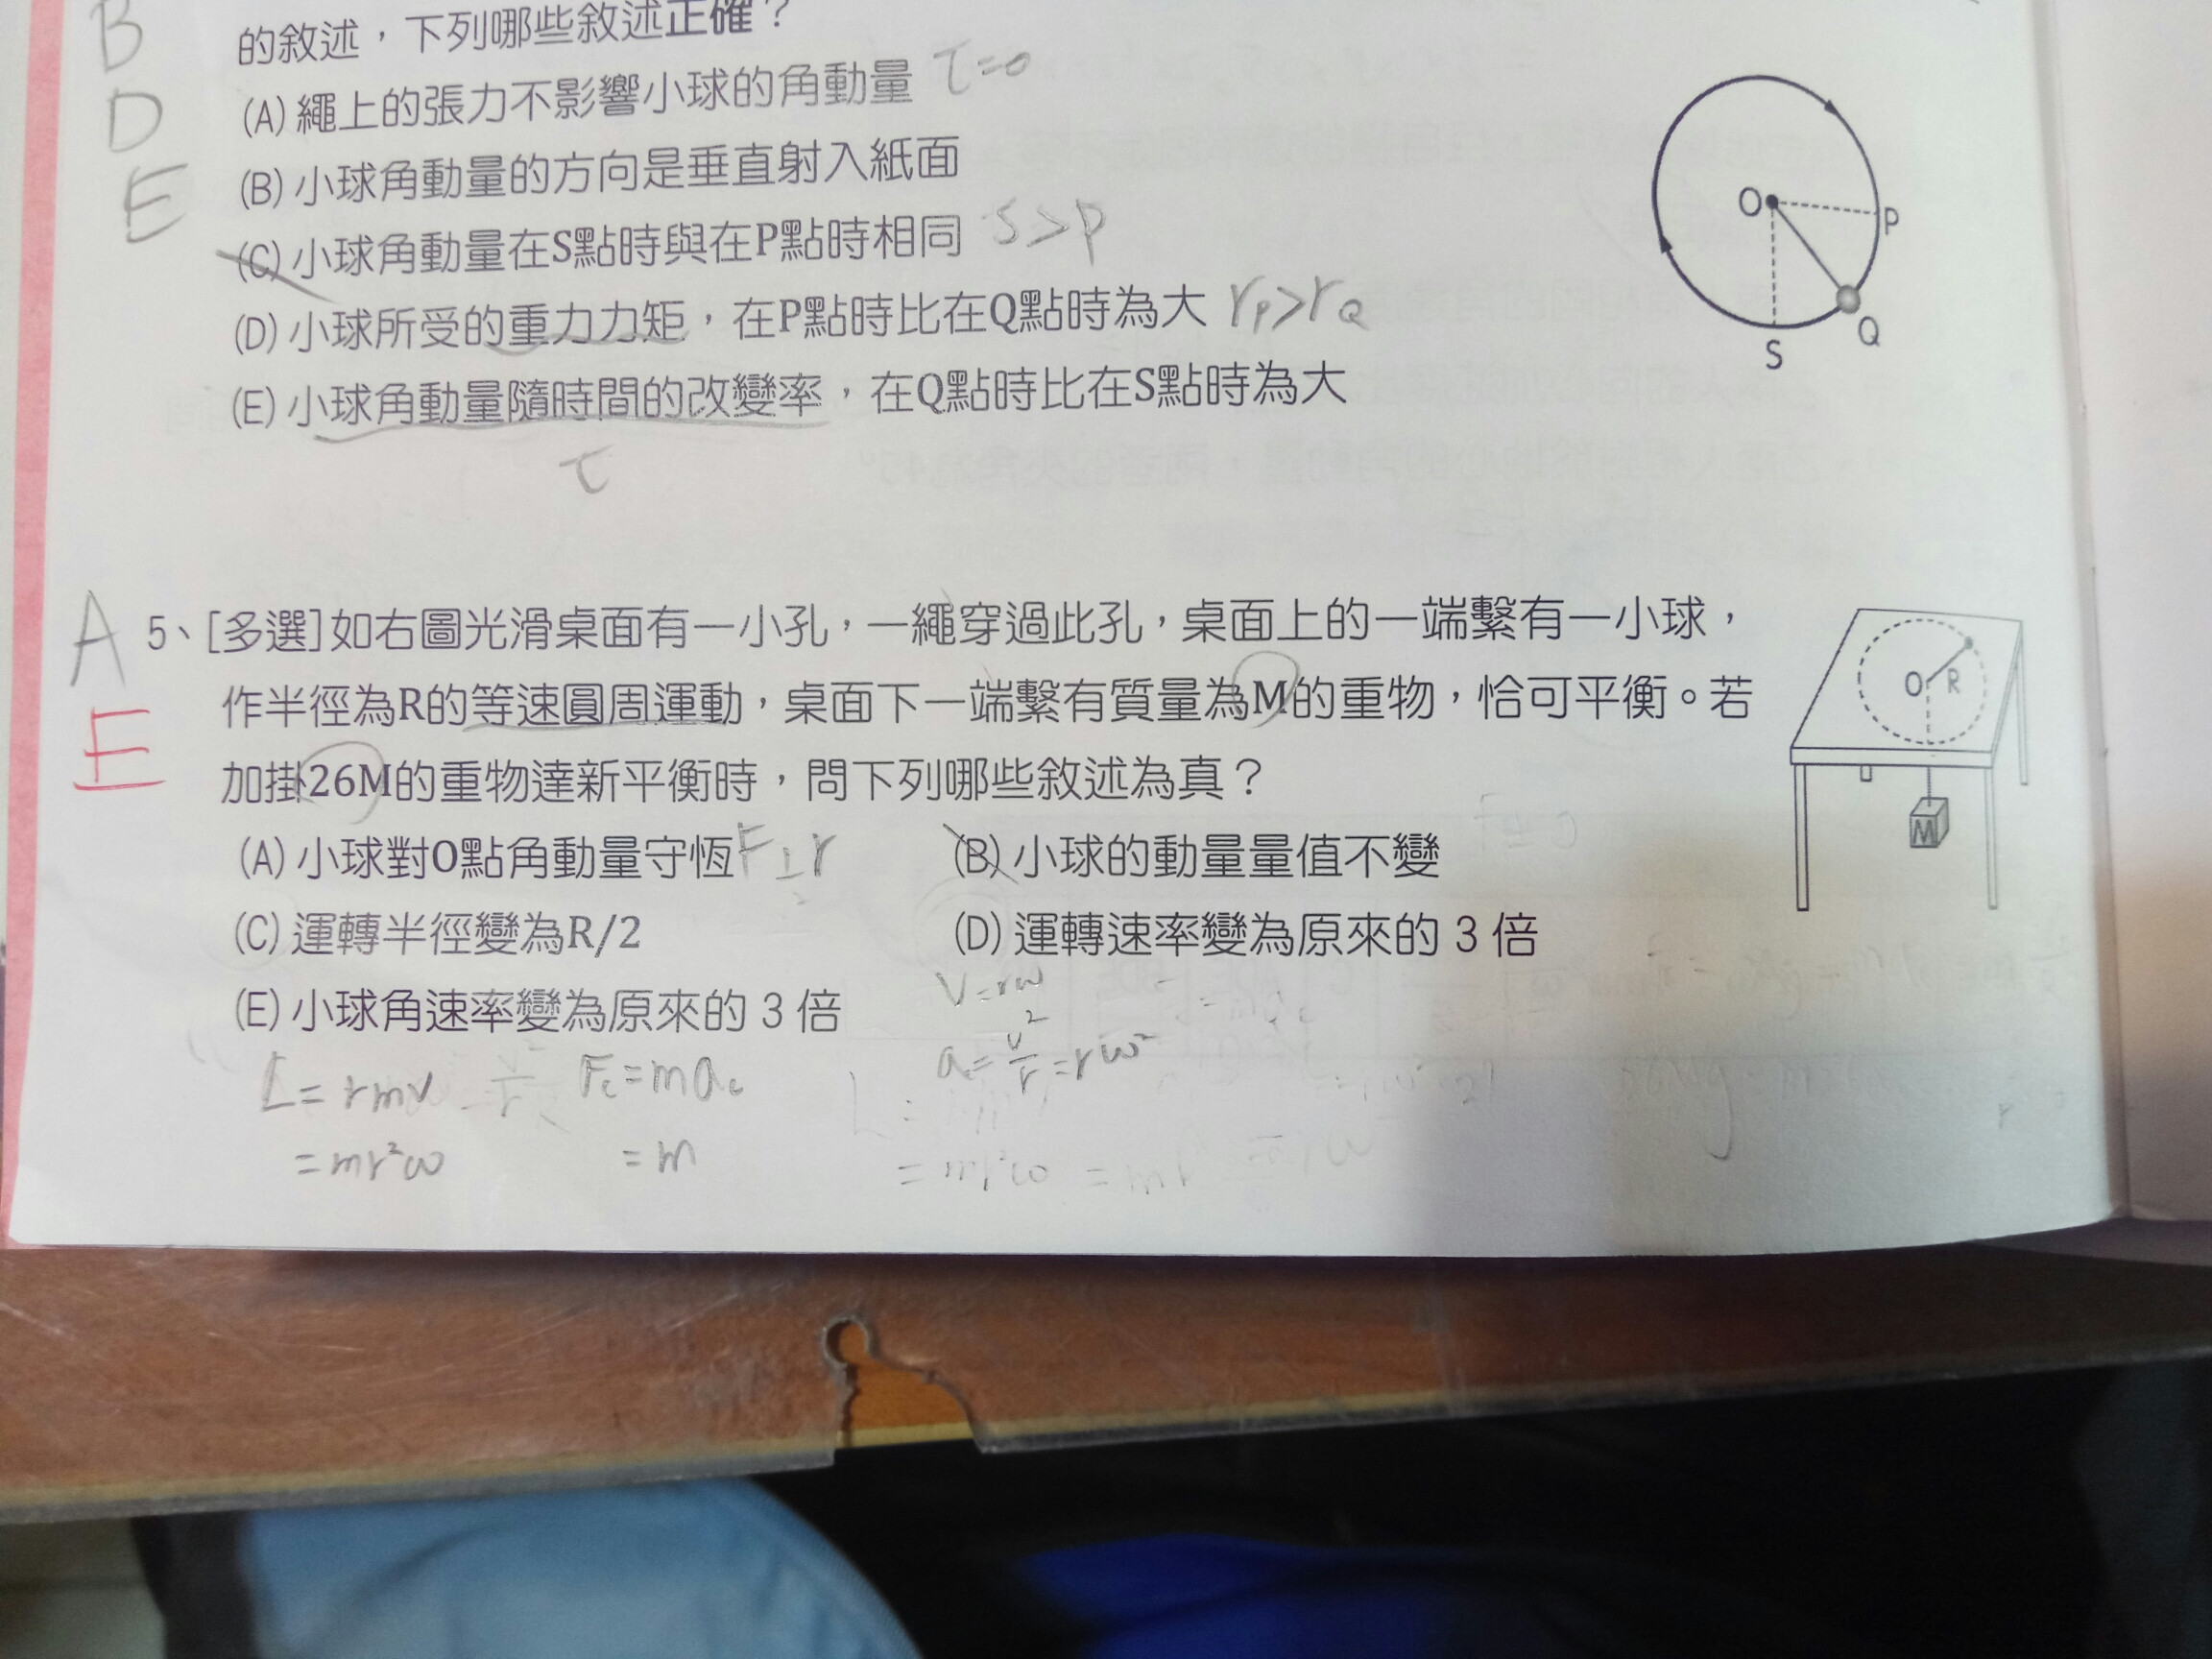 B
的敘述，下列哪些敘述正確？
D
(A) 繩上的張力不影響小球的角動量 τ=0
E
(B) 小球角動量的方向是垂直射入紙面
(C) 小球角動量在S點時與在P點時相同 S>P
(D) 小球所受的重力力矩，在P點時比在Q點時為大 rP>rQ
(E) 小球角動量隨時間的改變率，在Q點時比在S點時為大
τ
O
P
Q
S
A
E
5、[多選]如右圖光滑桌面有一小孔，一繩穿過此孔，桌面上的一端繫有一小球，
作半徑為R的等速圓周運動，桌面下一端繫有質量為M的重物，恰可平衡。若
加掛26M的重物達新平衡時，問下列哪些敘述為真？
(A) 小球對O點角動量守恆 F⊥r (B) 小球的動量量值不變
(C) 運轉半徑變為R/2 (D) 運轉速率變為原來的 3 倍
(E) 小球角速率變為原來的 3 倍
O R
M
V=rω
L=rmv Fc=mac ac=v²/r=rω²
=mr²ω =m